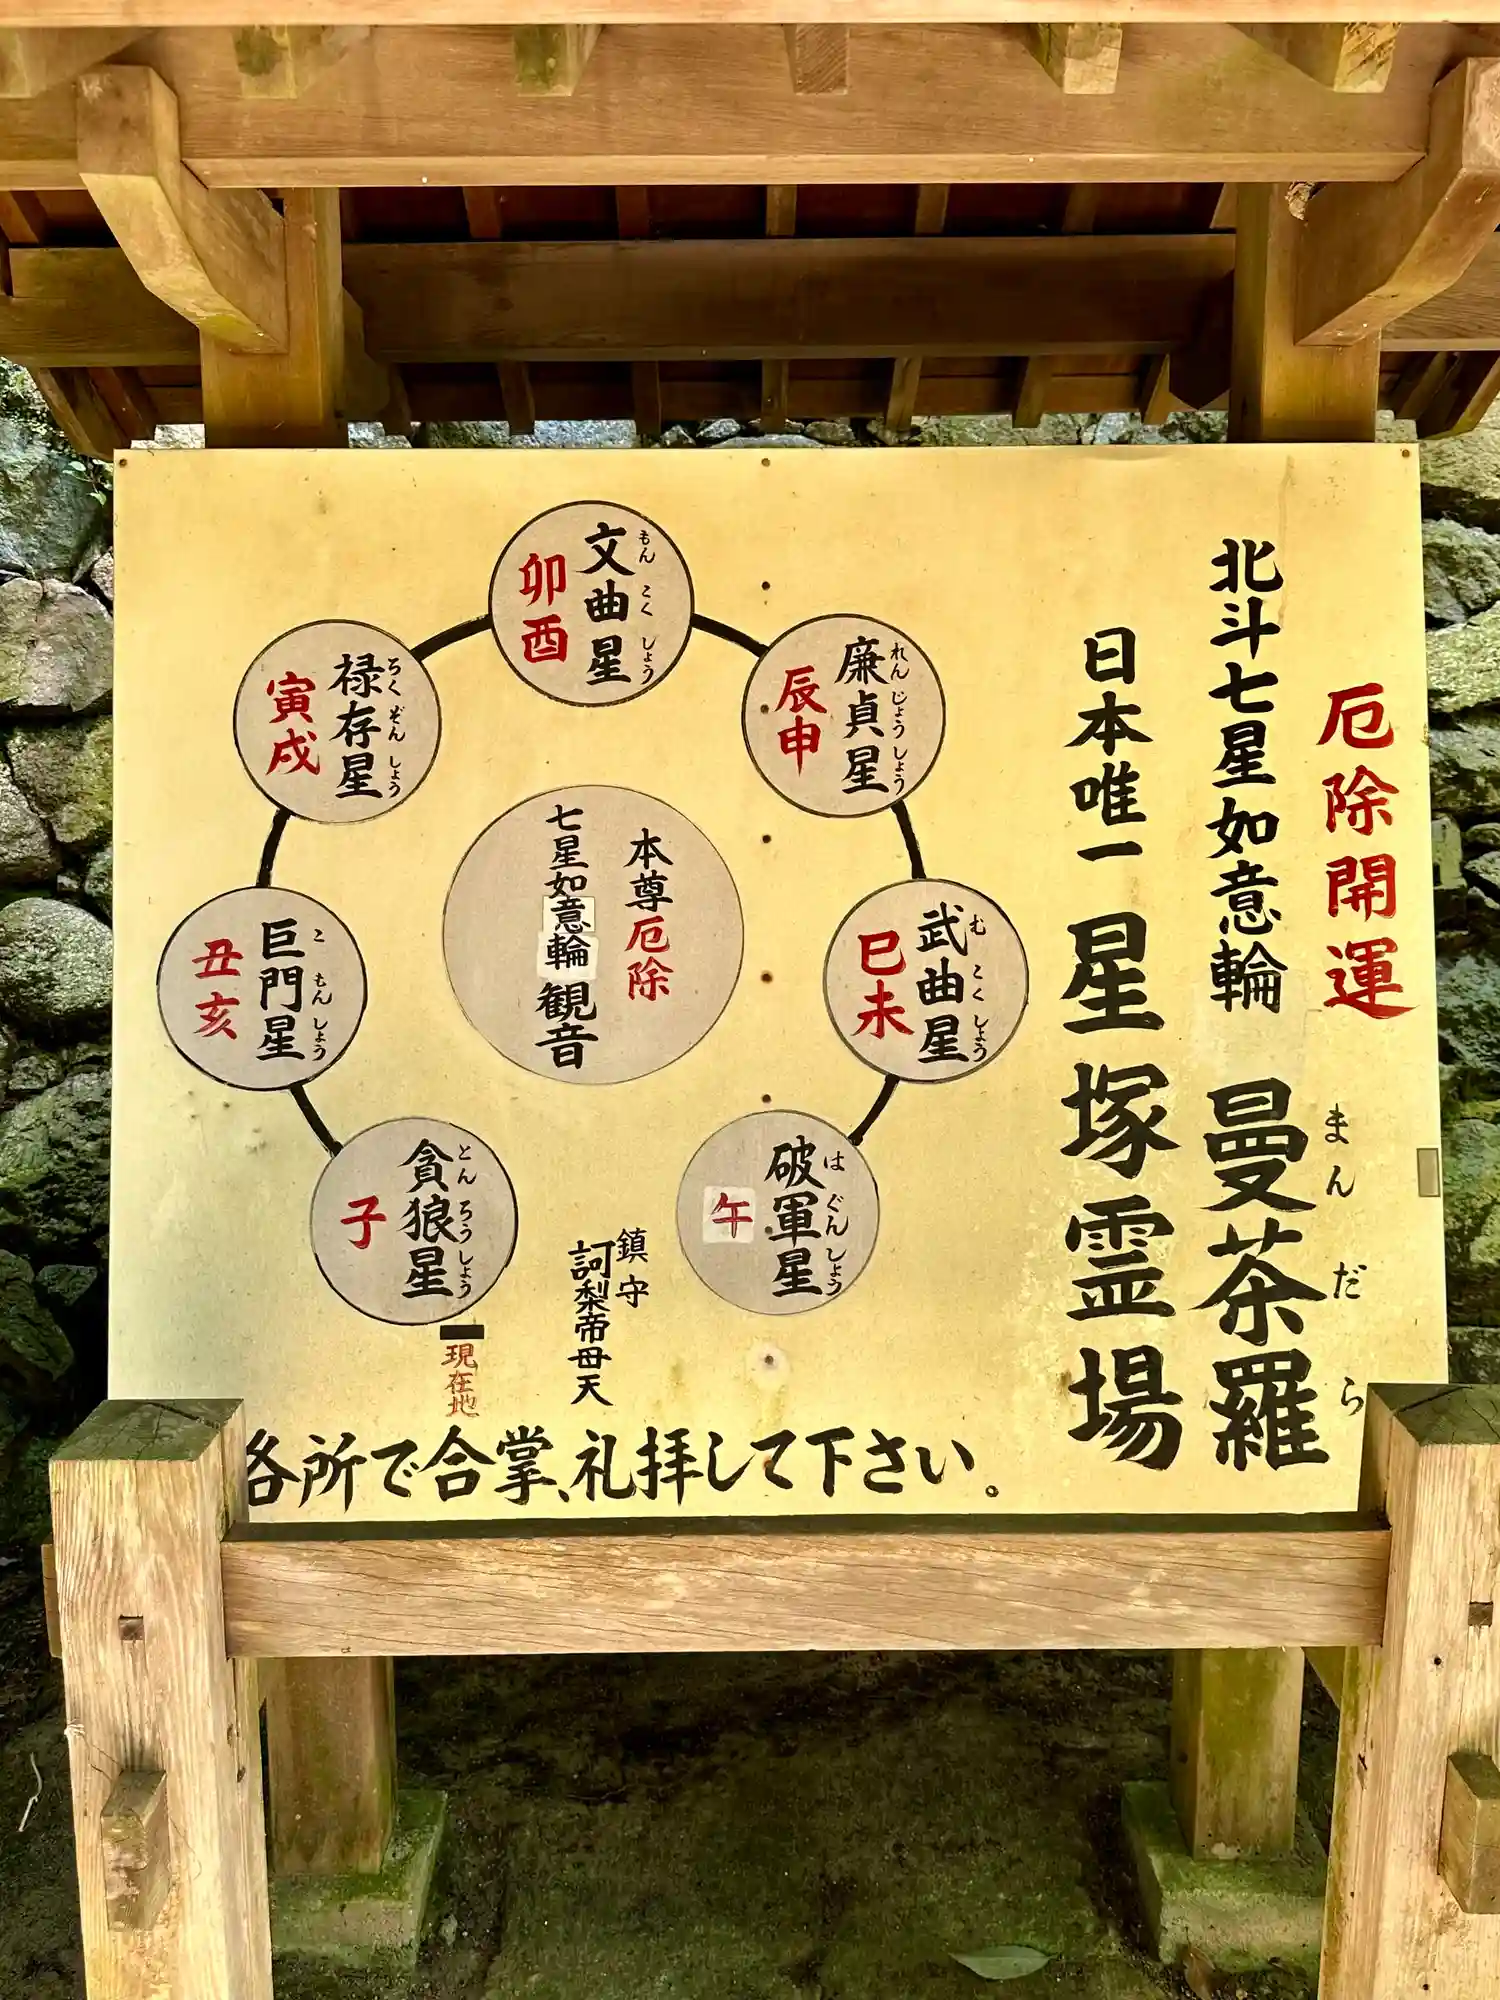 厄除開運
北斗七星如意輪 曼荼羅
まんだら
日本唯一 星塚霊場
文曲星
もんこくしょう
卯酉
廉貞星
れんじょうしょう
辰申
武曲星
むこくしょう
巳未
破軍星
はぐんしょう
午
禄存星
ろくぞんしょう
寅戌
巨門星
こもんしょう
丑亥
貪狼星
とんろうしょう
子
本尊厄除
七星如意輪観音
鎮守
訶梨帝母天
現在地
各所で合掌、礼拝して下さい。